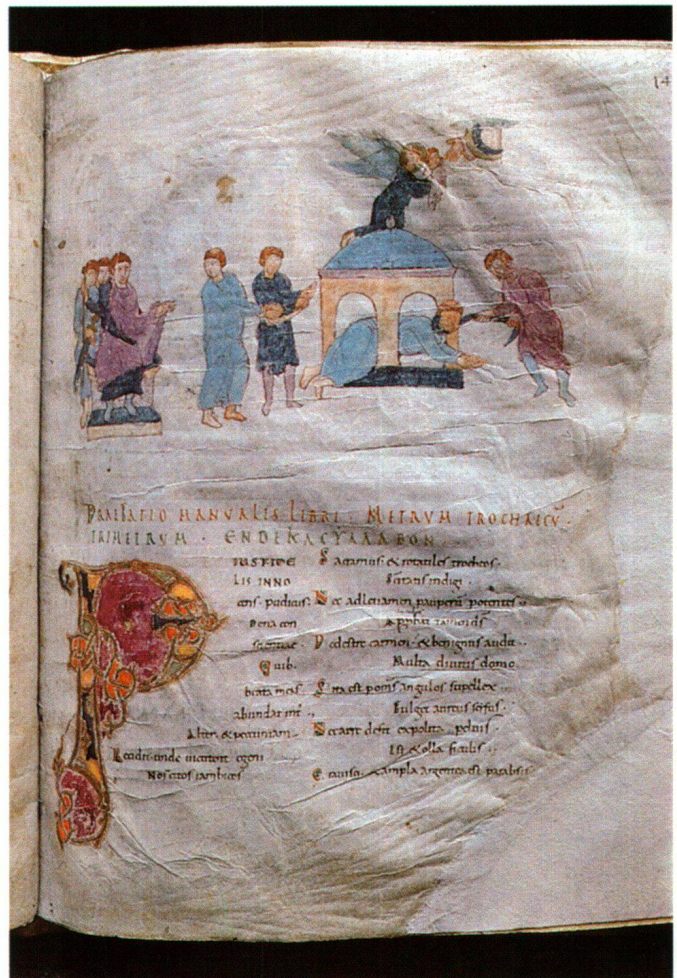 14
PRAEFATIO MANVALIS LIBRI · METRVM TROCHAICŪ ·
TRIMETRVM · ENDEKACYLLABON
IUS FIDE
LIS INNO
cens · pudicus ·
Dona con
scientiae ·
Quib ·
beata mens
abundat int
Alter & pecuniam
Recidit unde victitent egeni
Nos citos iambicos
Sacramus & rotatiles trocheos ·
indigi ·
Nec ad levamen pauperū potentes
Pedestre carmen · & benignus audit ·
Multa divitis domo
Sita est angulos supellex
Fulget aureus scifus ·
Nec aere defit expolita pelvis ·
Est & olla fictilis ·
& ampla argentea est parabsis ·